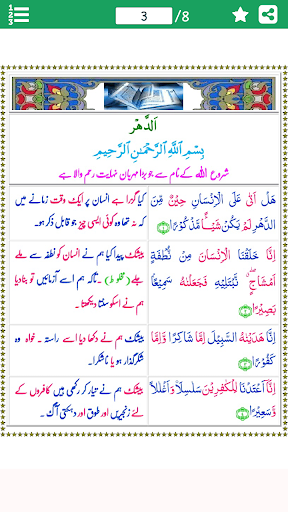 1
2
3
3
/8
اَلدَّهْر
بِسْمِ اللَّهِ الرَّحْمَٰنِ الرَّحِيمِ
شروع اللہ کے نام سے جو بڑا مہربان نہایت رحم والا ہے
هَلْ اَتٰى عَلَى الْاِنْسَانِ حِيْنٌ مِّنَ
الدَّهْرِ لَمْ يَكُنْ شَيْـًٔا مَّذْكُوْرًا ﴿١﴾
کیا گزرا ہے انسان پر ایک وقت زمانے میں
کہ نہ تھا وہ کوئی ایسی چیز جو قابل ذکر ہو۔
اِنَّا خَلَقْنَا الْاِنْسَانَ مِنْ نُّطْفَةٍ
اَمْشَاجٍ ۖ نَّبْتَلِيْهِ فَجَعَلْنٰهُ سَمِيْعًۢا
بَصِيْرًا ﴿٢﴾
بیشک پیدا کیا ہم نے انسان کو نطفہ سے ملے
جلے (مخلوط)۔ تاکہ ہم اسے آزمائیں تو بنا دیا
ہم نے اسکو سنتا دیکھتا۔
اِنَّا هَدَيْنٰهُ السَّبِيْلَ اِمَّا شَاكِرًا وَّاِمَّا
كَفُوْرًا ﴿٣﴾
بیشک ہم نے دکھا دیا اسے راستہ۔ خواہ وہ
شکرگذار ہو یا ناشکرا۔
اِنَّاۤ اَعْتَدْنَا لِلْكٰفِرِيْنَ سَلٰسِلَا۟ وَاَغْلٰلًا
وَّسَعِيْرًا ﴿٤﴾
بیشک ہم نے تیار کر رکھی ہیں کافروں کے
لئے زنجیریں اور طوق اور دہکتی آگ۔